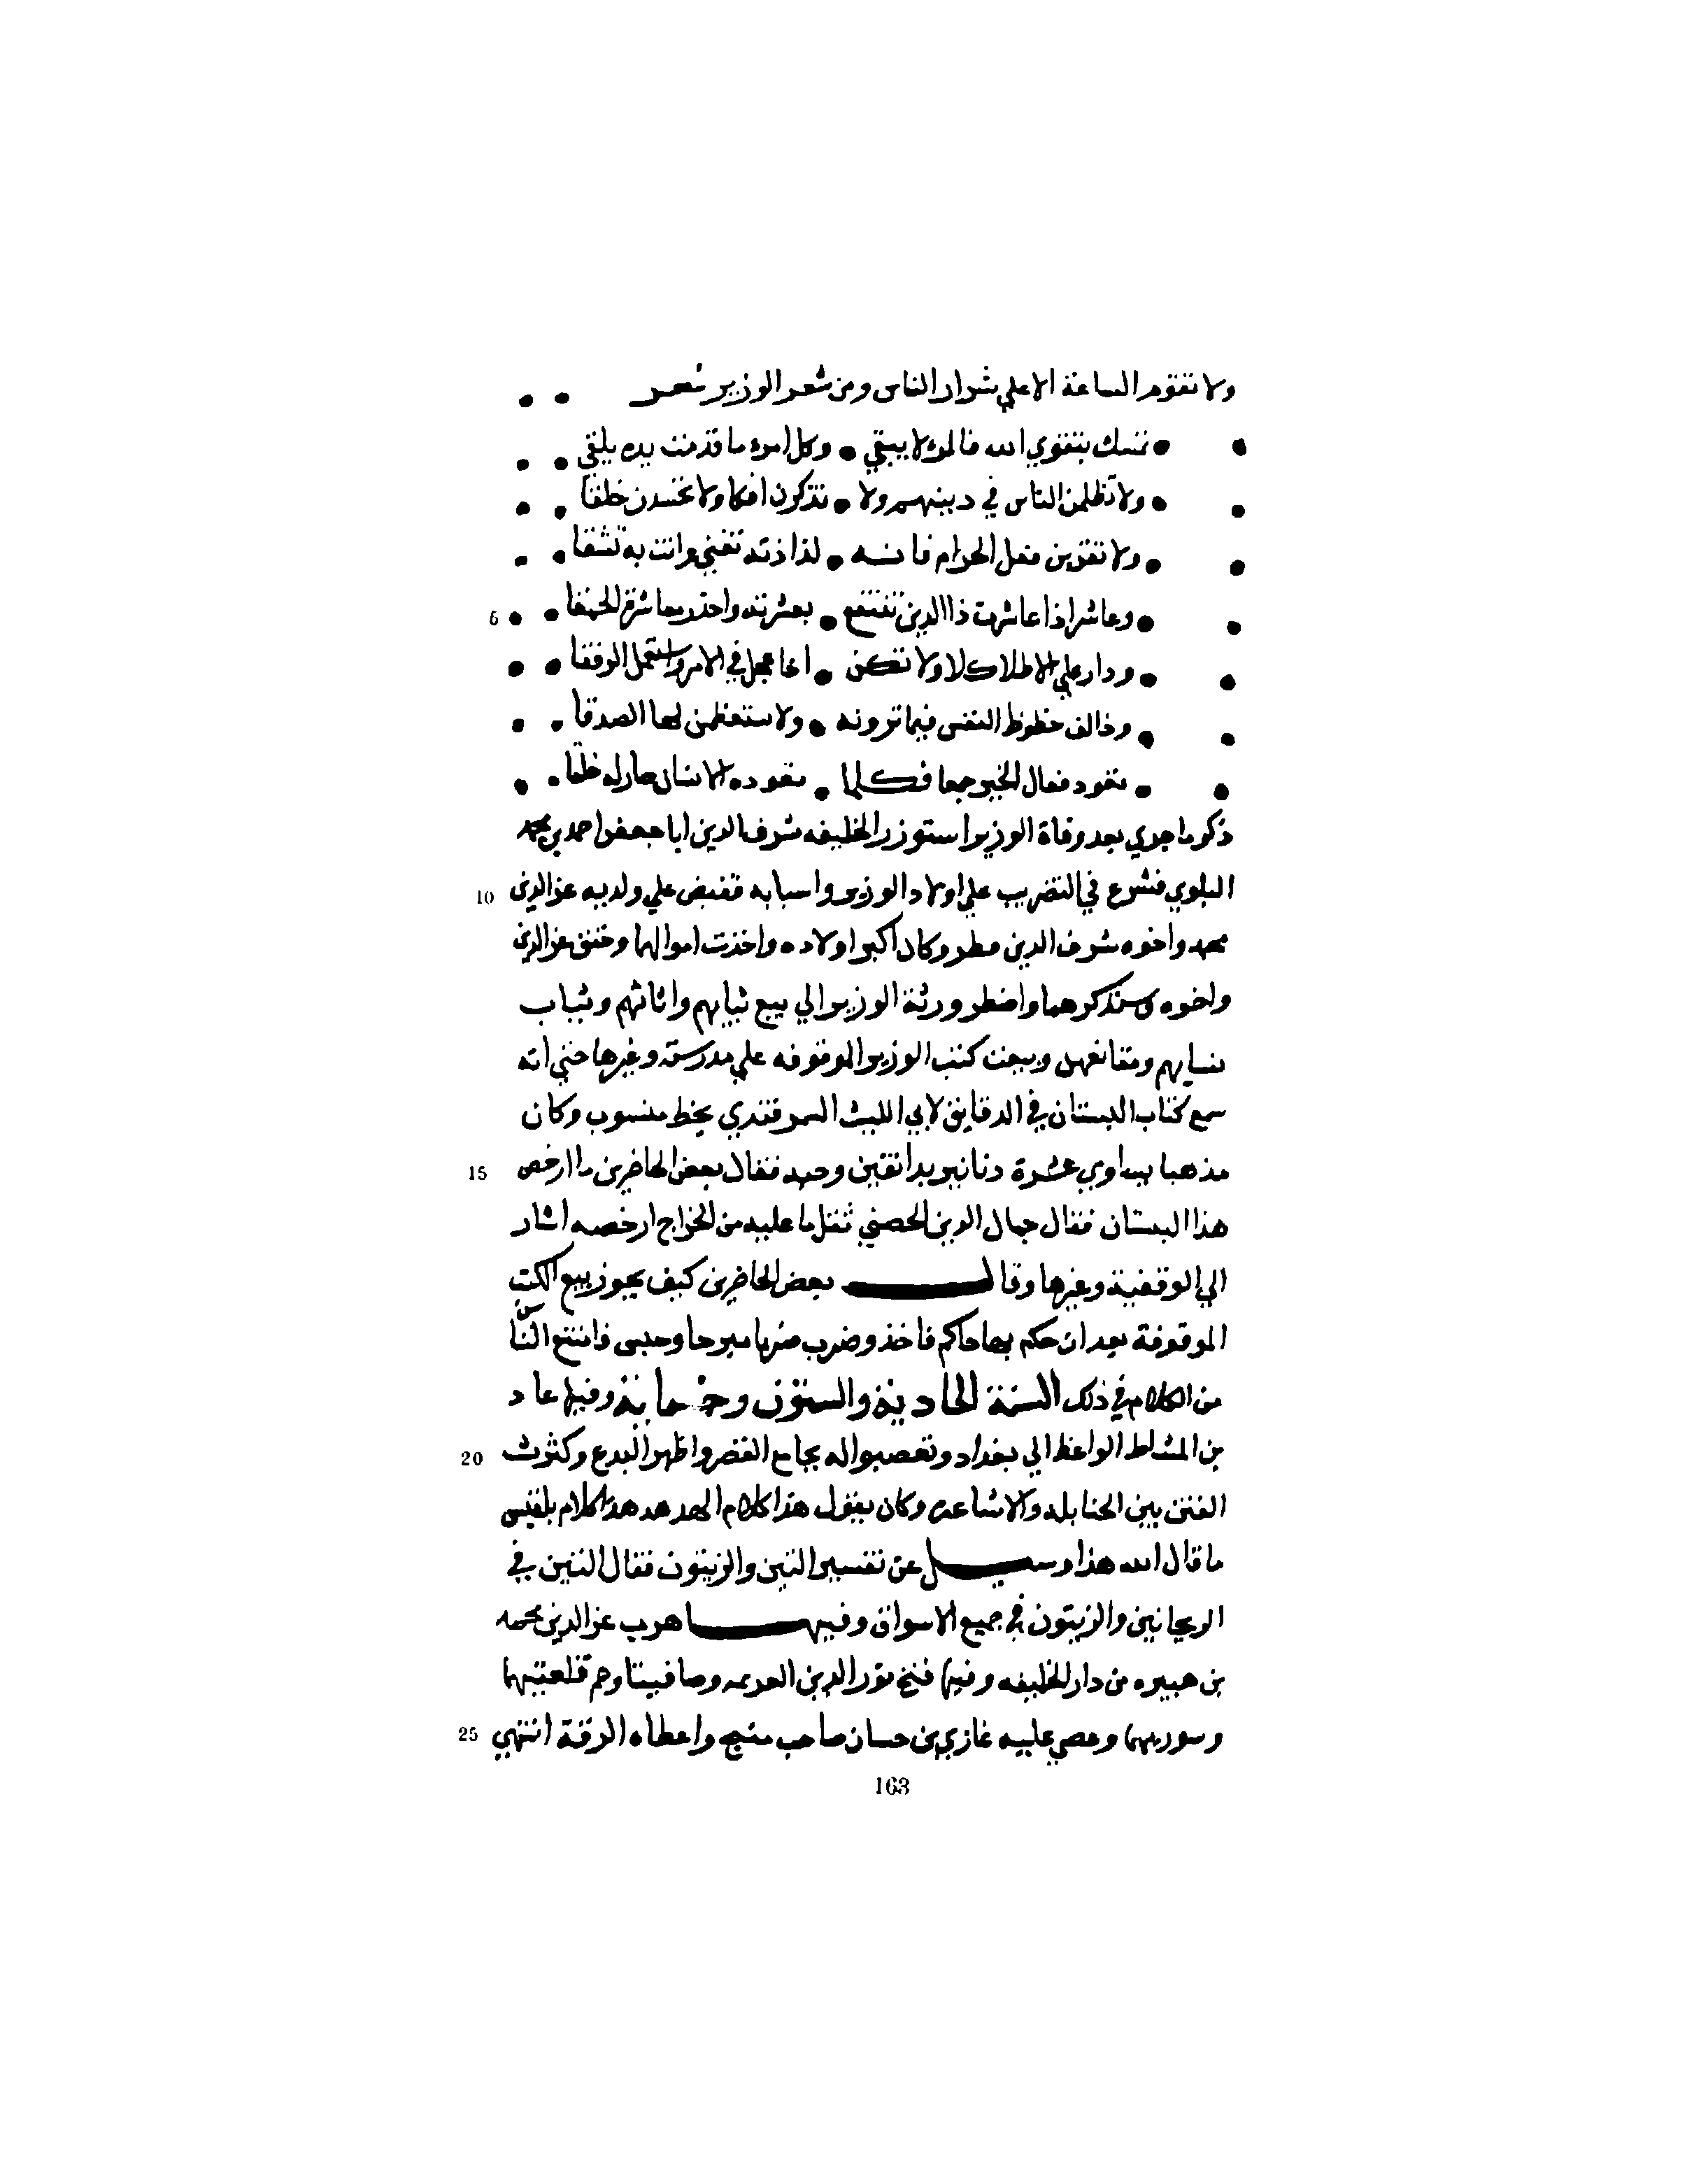 ولا تقوم الساعة الا علي شرار الناس ومن شعر الوزير شعر
تمسك بتقوي الله فالمرء لا يبقي • وكل امرء ما قدمت يده يلقي
ولا تظلمن الناس في دينهم ولا • تذكرن افكا ولا تحسدن خلقا
ولا تقربن فعل الحرام فانه • لذاذته تفني وانت به تشقا
وعاشر اذا عاشرت ذا الدين تنتفع • بعشرته واحذر معاشرة الحمقا 5
ودار علي الاطلاق كلا ولا تكن • اخا عجل في الامر واستعمل الرفقا
وخالف حظوظ النفس فيما ترونه • ولا ستعظمن لها الصدقا
تعود فعال الخير جمعا فكلما • تعوده الانسان صار له خلقا
ذكر ما جري بعد وفاة الوزير استوزر الخليفه شرف الدين ابا جعفر احمد بن محمد
البلوي فشرع في التضريب علي اولاد الوزير واسبابه فقبض علي ولديه عز الدين 10
محمد واخوه شرف الدين مظفر وكان اكبر اولاده واخذت اموالهما وخنق عز الدين
واخوه وسنذكرهما واضطر ورثة الوزير الي بيع ثيابهم واثاثهم وثياب
نسايهم ومقانعهن وبيعت كتب الوزير الموقوفه علي مدرسته وغيرها حتي انه
سمع كتاب البستان في الدقايق لابي الليث السمرقندي بخط منسوب وكان
مذهبا يساوي عشرة دنانير بدانقين وحبه فقال بعض الحاضرين ما ارخص 15
هذا البستان فقال جمال الدين الحصني ثقل ما عليه من الخراج ارخصه اشار
الي الوقفية وغيرها وقال بعض الحاضرين كيف يجوز بيع الكتب
الموقوفة بعد ان حكم بها حاكم فاخذ وضرب ضربا مبرحا وحبس فامتنع الناس
من الكلام في ذلك السنة الحادية والستون وخمسماية وفيها عاد
بن المشاط الواعظ الي بغداد وتعصبوا له بجامع القصر واظهر البدع وكثرت 20
الفتن بين الحنابله والاشاعره وكان يقول هذا كلام الهدهد هذا كلام بلقيس
ما قال الله هذا وسيل عن تفسير التين والزيتون فقال التين في
الريحانيين والزيتون في جميع الاسواق وفيها هرب عز الدين محمد
بن هبيره من دار الخليفه وفيها فتح نور الدين العريمه وصافيتا وهدم قلعتيهما
وسوريهما وعصي عليه غازي بن حسان صاحب منبج واعطاه الرقة انتهي 25
163